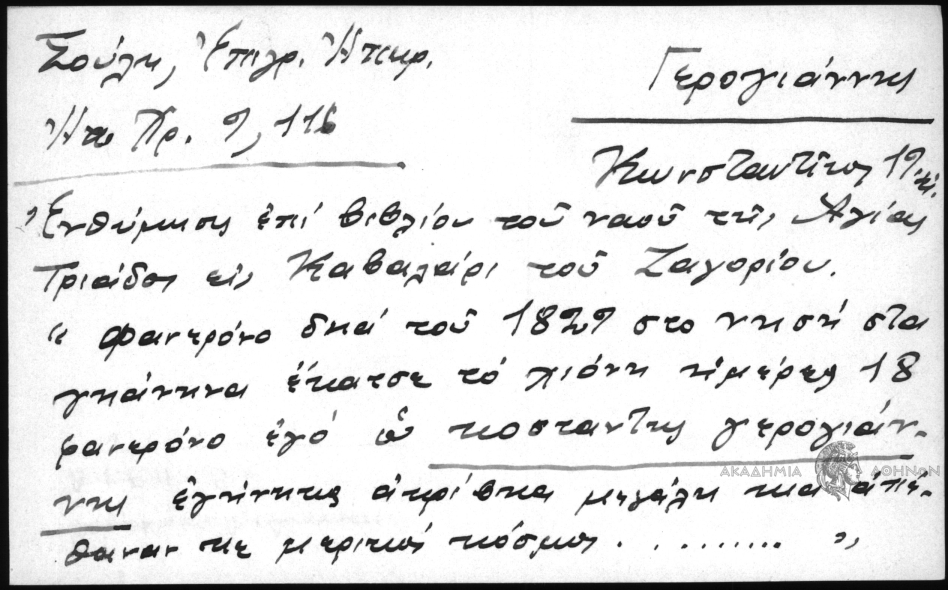 Σούλη, Ἐπιγρ. Ἠπειρ.
Γερογιάννης
Ἠπ Χρ. 9, 116
Κωνσταντῖνος 19.
Ἐνθύμησις ἐπί βιβλίου τοῦ ναοῦ τῆς Ἁγίας
Τριάδος εἰς Καβαλάρι τοῦ Ζαγορίου.
“ Φανερόνο δηά τοῦ 1829 στο νησή στα
γηάνηνα ἔκατσε τό χιόνη ημέρες 18
φανερόνο ἐγό ὁ κοσταντης γερογιάν-
νης ἐγήνηκε ἀκρίβηα μεγάλη κια ἀπέ-
θαναν κε μερικοί κόσμος . . . . . . . . . . ”
ΑΚΑΔΗΜΙΑ ΑΘΗΝΩΝ